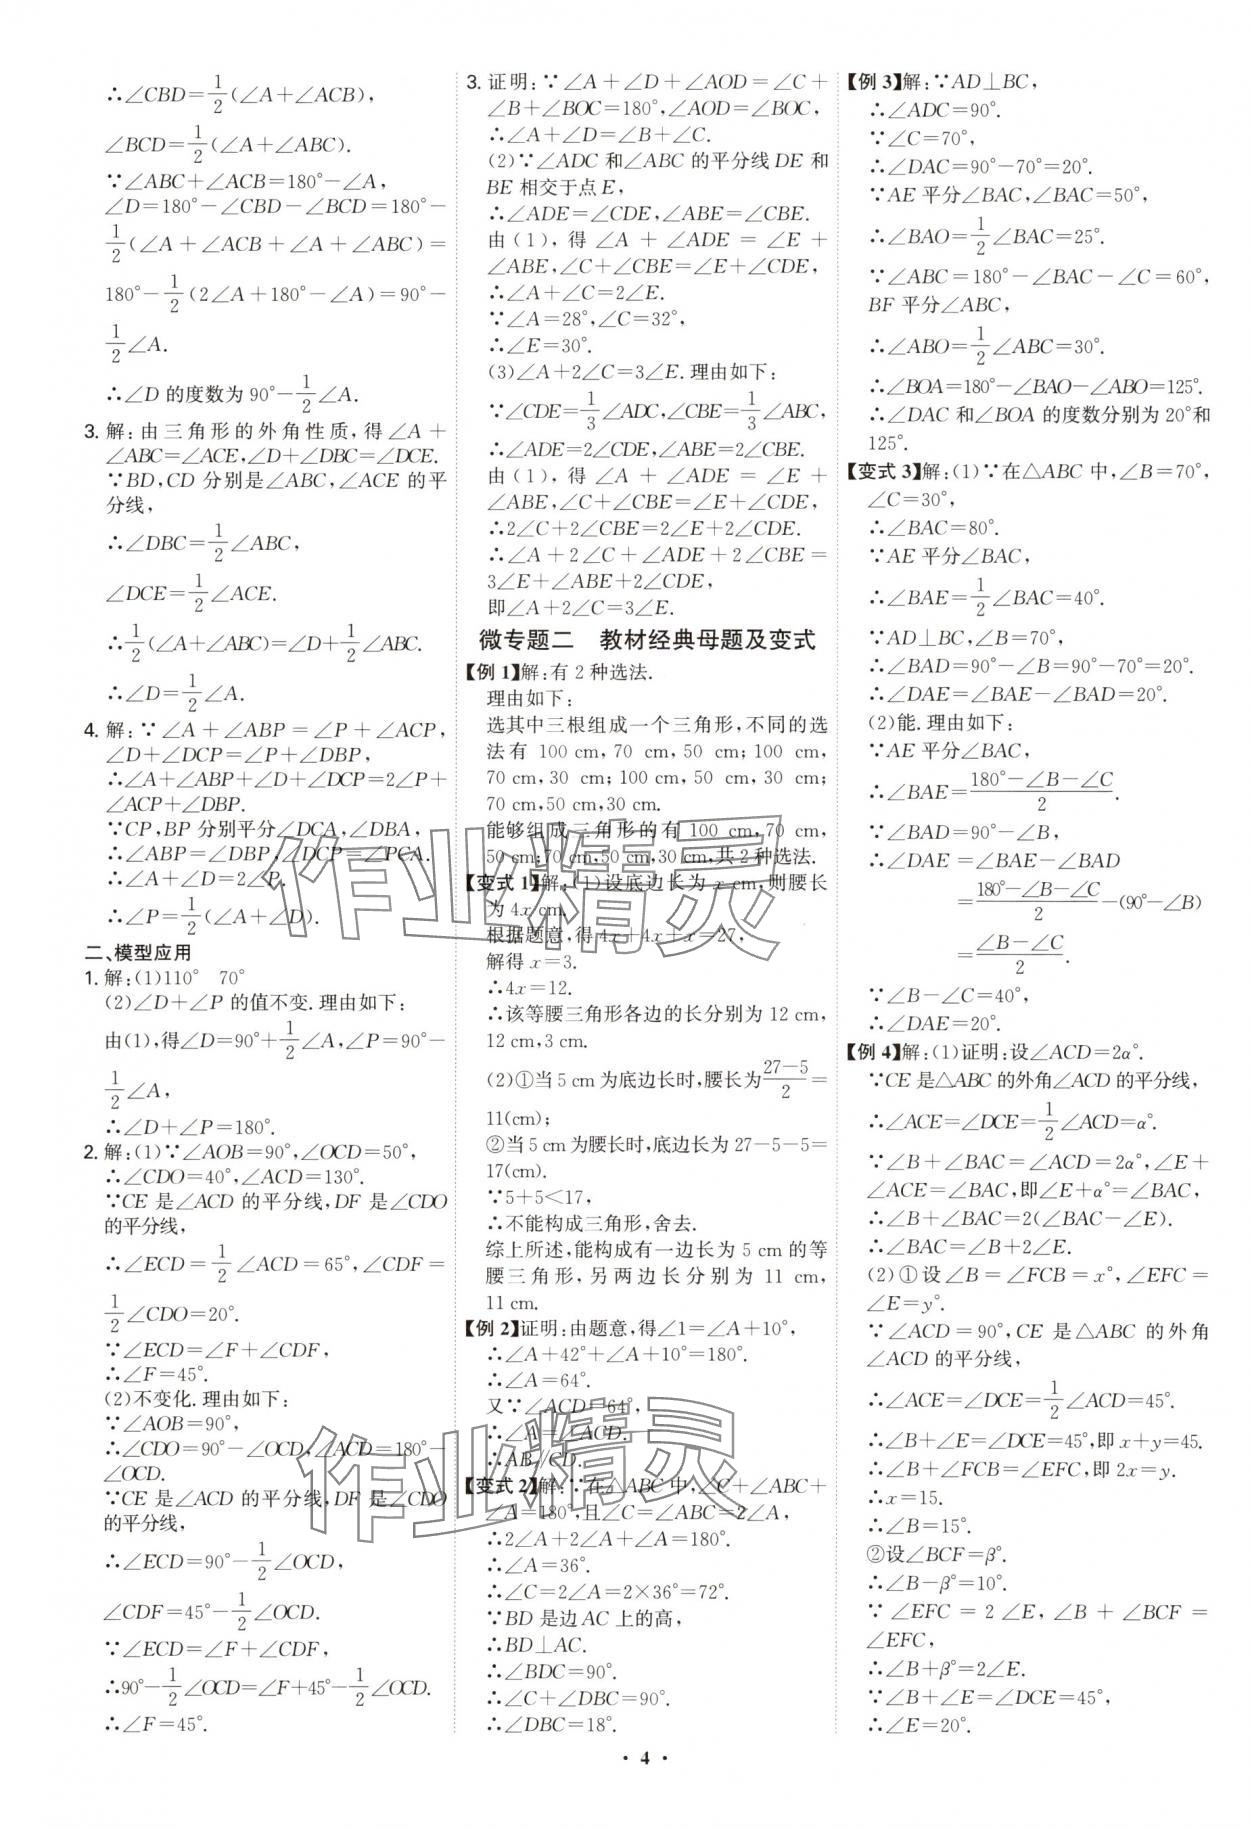 ∴∠CBD=1/2(∠A+∠ACB),
∠BCD=1/2(∠A+∠ABC).
∵∠ABC+∠ACB=180°-∠A,
∠D=180°-∠CBD-∠BCD=180°-
1/2(∠A+∠ACB+∠A+∠ABC)=
180°-1/2(2∠A+180°-∠A)=90°-
1/2∠A.
∴∠D 的度数为 90°-1/2∠A.
3. 解:由三角形的外角性质,得∠A+
∠ABC=∠ACE,∠D+∠DBC=∠DCE.
∵BD,CD 分别是∠ABC,∠ACE 的平
分线,
∴∠DBC=1/2∠ABC,
∠DCE=1/2∠ACE.
∴1/2(∠A+∠ABC)=∠D+1/2∠ABC.
∴∠D=1/2∠A.
4. 解:∵∠A+∠ABP=∠P+∠ACP,
∠D+∠DCP=∠P+∠DBP,
∴∠A+∠ABP+∠D+∠DCP=2∠P+
∠ACP+∠DBP.
∵CP,BP 分别平分∠DCA,∠DBA,
∴∠ABP=∠DBP,∠DCP=∠PCA.
∴∠A+∠D=2∠P.
∴∠P=1/2(∠A+∠D).
二、模型应用
1. 解:(1)110° 70°
(2)∠D+∠P 的值不变.理由如下:
由(1),得∠D=90°+1/2∠A,∠P=90°-
1/2∠A,
∴∠D+∠P=180°.
2. 解:(1)∵∠AOB=90°,∠OCD=50°,
∴∠CDO=40°,∠ACD=130°.
∵CE 是∠ACD 的平分线,DF 是∠CDO
的平分线,
∴∠ECD=1/2∠ACD=65°,∠CDF=
1/2∠CDO=20°.
∵∠ECD=∠F+∠CDF,
∴∠F=45°.
(2)不变化.理由如下:
∵∠AOB=90°,
∴∠CDO=90°-∠OCD,∠ACD=180°-
∠OCD.
∵CE 是∠ACD 的平分线,DF 是∠CDO
的平分线,
∴∠ECD=90°-1/2∠OCD,
∠CDF=45°-1/2∠OCD.
∵∠ECD=∠F+∠CDF,
∴90°-1/2∠OCD=∠F+45°-1/2∠OCD.
∴∠F=45°.
3. 证明:∵∠A+∠D+∠AOD=∠C+
∠B+∠BOC=180°,∠AOD=∠BOC,
∴∠A+∠D=∠B+∠C.
(2)∵∠ADC 和∠ABC 的平分线 DE 和
BE 相交于点 E,
∴∠ADE=∠CDE,∠ABE=∠CBE.
由(1),得∠A+∠ADE=∠E+
∠ABE,∠C+∠CBE=∠E+∠CDE,
∴∠A+∠C=2∠E.
∵∠A=28°,∠C=32°,
∴∠E=30°.
(3)∠A+2∠C=3∠E.理由如下:
∵∠CDE=1/3∠ADC,∠CBE=1/3∠ABC,
∴∠ADE=2∠CDE,∠ABE=2∠CBE.
由(1),得∠A+∠ADE=∠E+
∠ABE,∠C+∠CBE=∠E+∠CDE,
∴2∠C+2∠CBE=2∠E+2∠CDE.
∴∠A+2∠C+∠ADE+2∠CBE=
3∠E+∠ABE+2∠CDE,
即∠A+2∠C=3∠E.
微专题二 教材经典母题及变式
【例 1】解:有 2 种选法.
理由如下:
选其中三根组成一个三角形,不同的选
法有 100 cm,70 cm,50 cm;100 cm,
70 cm,30 cm;100 cm,50 cm,30 cm;
70 cm,50 cm,30 cm.
能够组成三角形的有 100 cm,70 cm,
50 cm;70 cm,50 cm,30 cm,共 2 种选法.
【变式 1】解:(1)设底边长为 x cm,则腰长
为 4x cm.
根据题意,得 4x+4x+x=27,
解得 x=3.
∴4x=12.
∴该等腰三角形各边的长分别为 12 cm,
12 cm,3 cm.
(2)①当 5 cm 为底边长时,腰长为(27-5)/2=
11(cm);
②当 5 cm 为腰长时,底边长为 27-5-5=
17(cm).
∵5+5<17,
∴不能构成三角形,舍去.
综上所述,能构成有一边长为 5 cm 的等
腰三角形,另两边长分别为 11 cm,
11 cm.
【例 2】证明:由题意,得∠1=∠A+10°,
∴∠A+42°+∠A+10°=180°.
∴∠A=64°.
又∵∠ACD=64°,
∴∠A=∠ACD.
∴AB∥CD.
【变式 2】解:∵在△ABC 中,∠C+∠ABC+
∠A=180°,且∠C=∠ABC=2∠A,
∴2∠A+2∠A+∠A=180°.
∴∠A=36°.
∴∠C=2∠A=2×36°=72°.
∵BD 是边 AC 上的高,
∴BD⊥AC.
∴∠BDC=90°.
∴∠C+∠DBC=90°.
∴∠DBC=18°.
【例 3】解:∵AD⊥BC,
∴∠ADC=90°.
∵∠C=70°,
∴∠DAC=90°-70°=20°.
∵AE 平分∠BAC,∠BAC=50°,
∴∠BAO=1/2∠BAC=25°.
∵∠ABC=180°-∠BAC-∠C=60°,
BF 平分∠ABC,
∴∠ABO=1/2∠ABC=30°.
∴∠BOA=180°-∠BAO-∠ABO=125°.
∴∠DAC 和∠BOA 的度数分别为 20°和
125°.
【变式 3】解:(1)∵在△ABC 中,∠B=70°,
∠C=30°,
∴∠BAC=80°.
∵AE 平分∠BAC,
∴∠BAE=1/2∠BAC=40°.
∵AD⊥BC,∠B=70°,
∴∠BAD=90°-∠B=90°-70°=20°.
∴∠DAE=∠BAE-∠BAD=20°.
(2)能.理由如下:
∵AE 平分∠BAC,
∴∠BAE=(180°-∠B-∠C)/2.
∵∠BAD=90°-∠B,
∴∠DAE=∠BAE-∠BAD
=(180°-∠B-∠C)/2-(90°-∠B)
=(∠B-∠C)/2.
∵∠B-∠C=40°,
∴∠DAE=20°.
【例 4】解:(1)证明:设∠ACD=2α°.
∵CE 是△ABC 的外角∠ACD 的平分线,
∴∠ACE=∠DCE=1/2∠ACD=α°.
∵∠B+∠BAC=∠ACD=2α°,∠E+
∠ACE=∠BAC,即∠E+α°=∠BAC,
∴∠B+∠BAC=2(∠BAC-∠E).
∴∠BAC=∠B+2∠E.
(2)①设∠B=∠FCB=x°,∠EFC=
∠E=y°.
∵∠ACD=90°,CE 是△ABC 的外角
∠ACD 的平分线,
∴∠ACE=∠DCE=1/2∠ACD=45°.
∴∠B+∠E=∠DCE=45°,即 x+y=45.
∴∠B+∠FCB=∠EFC,即 2x=y.
∴x=15.
∴∠B=15°.
②设∠BCF=β°.
∴∠B-β°=10°.
∵∠EFC=2∠E,∠B+∠BCF=
∠EFC,
∴∠B+β°=2∠E.
∵∠B+∠E=∠DCE=45°,
∴∠E=20°.
作业精灵
作业精灵
· 4 ·